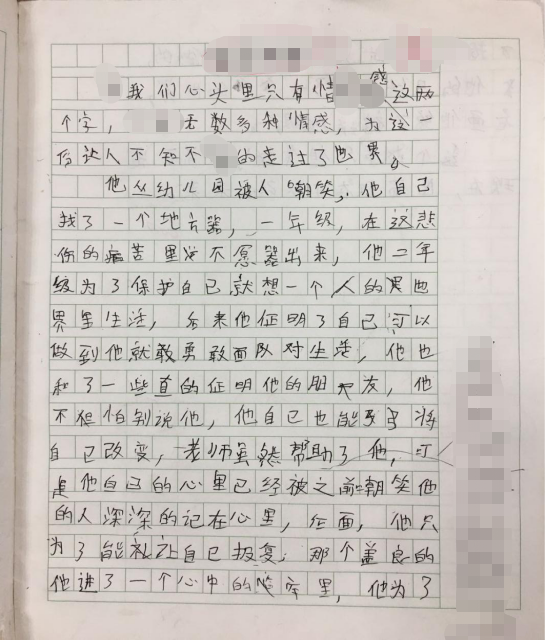 我们心头里只有情感这两
个字，无数多种情感，为这一
份让人不知不的走过了世界。
他从幼儿园被人嘲笑，他自己
找了一个地方器，一年级，在这悲
伤的痛苦里说不愿器出来，他二年
级为了保护自己就想一个人的世
界里生活，后来他证明了自己可以
做到他就敢勇敢面队对生活，他也
和了一些真的证明他的朋友，他
不但怕别说他，他自己也能将
自己改变，老师虽然帮助了他，可
是他自己的心里已经被之前嘲笑他
的人深深的记在心里，在面，他只
为了能让自己报复，那个善良的
他进了一个心中的里，他为了